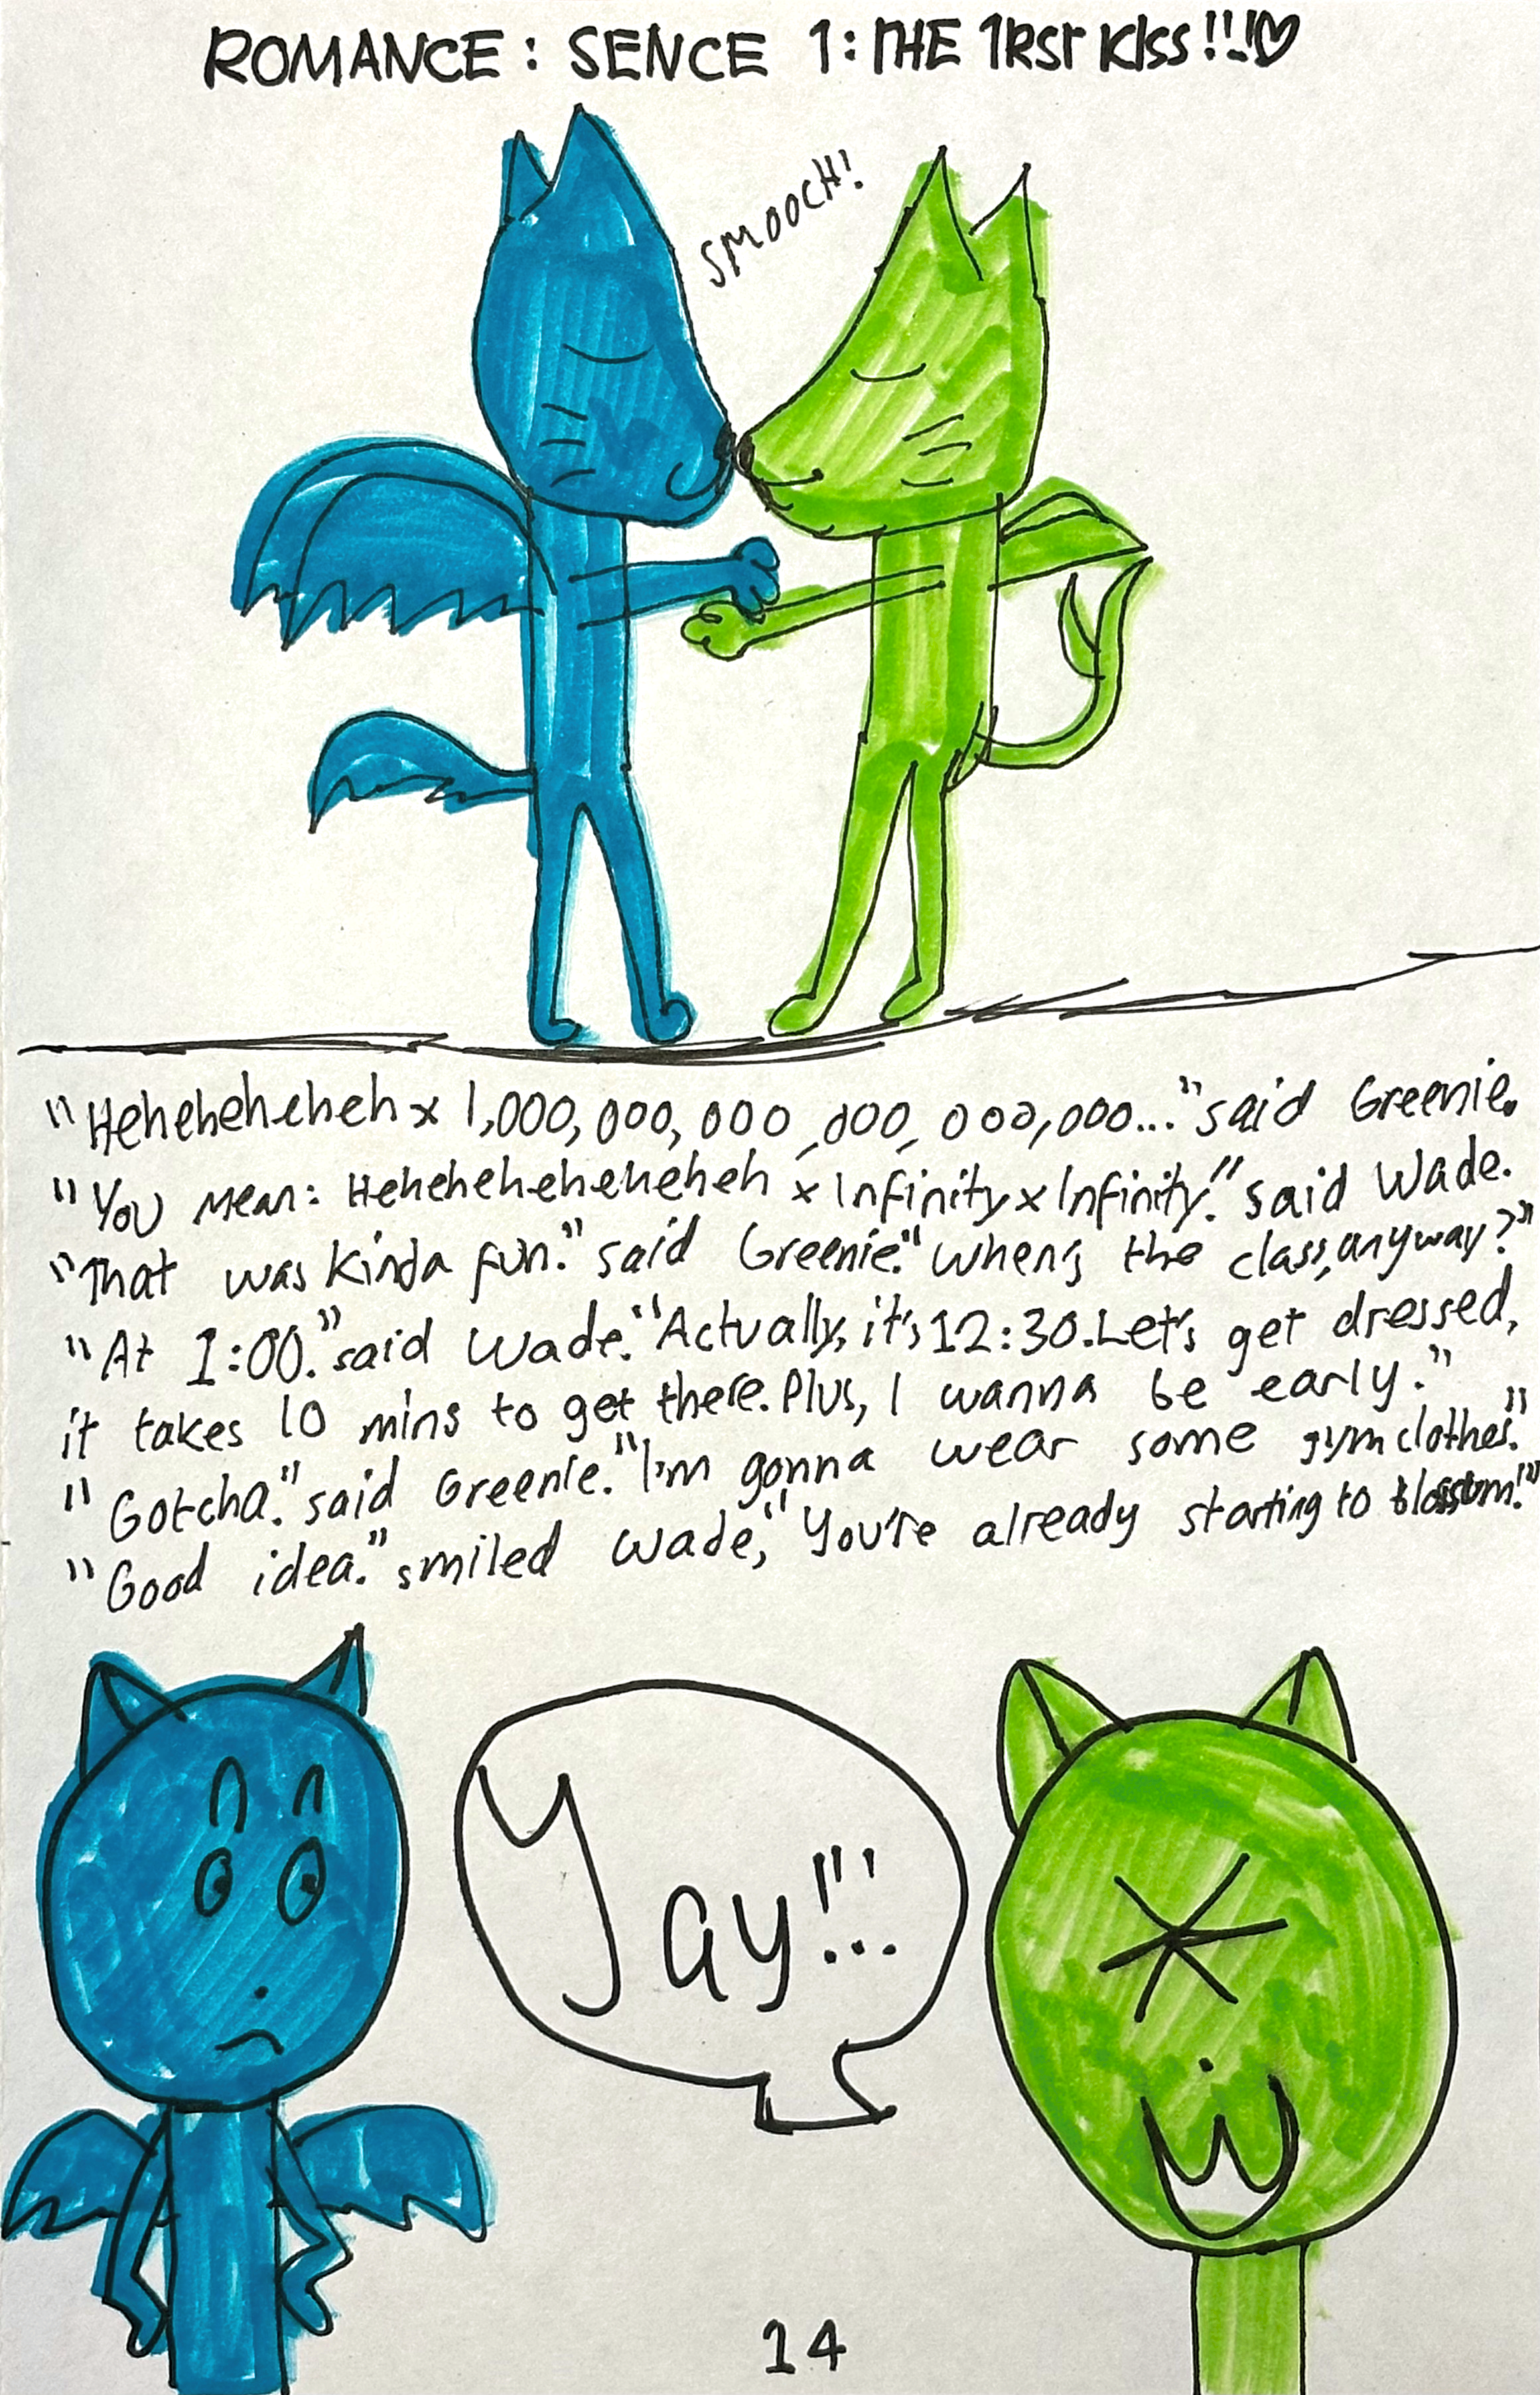 ROMANCE: SENCE 1: THE 1RST KISS!!!♡
SMOOCH!
"Heheheheheh x 1,000,000,000,000,000,000..." said Greenie.
"You mean: Hehehehehehehehh x Infinity x Infinity!" said Wade.
"That was kinda fun." said Greenie. "When's the class, anyway?"
"At 1:00." said Wade. "Actually, it's 12:30. Let's get dressed,
it takes 10 mins to get there. Plus, I wanna be early."
"Gotcha." said Greenie. "I'm gonna wear some gym clothes."
"Good idea." smiled Wade, "You're already starting to blossom!"
Yay!!!
14